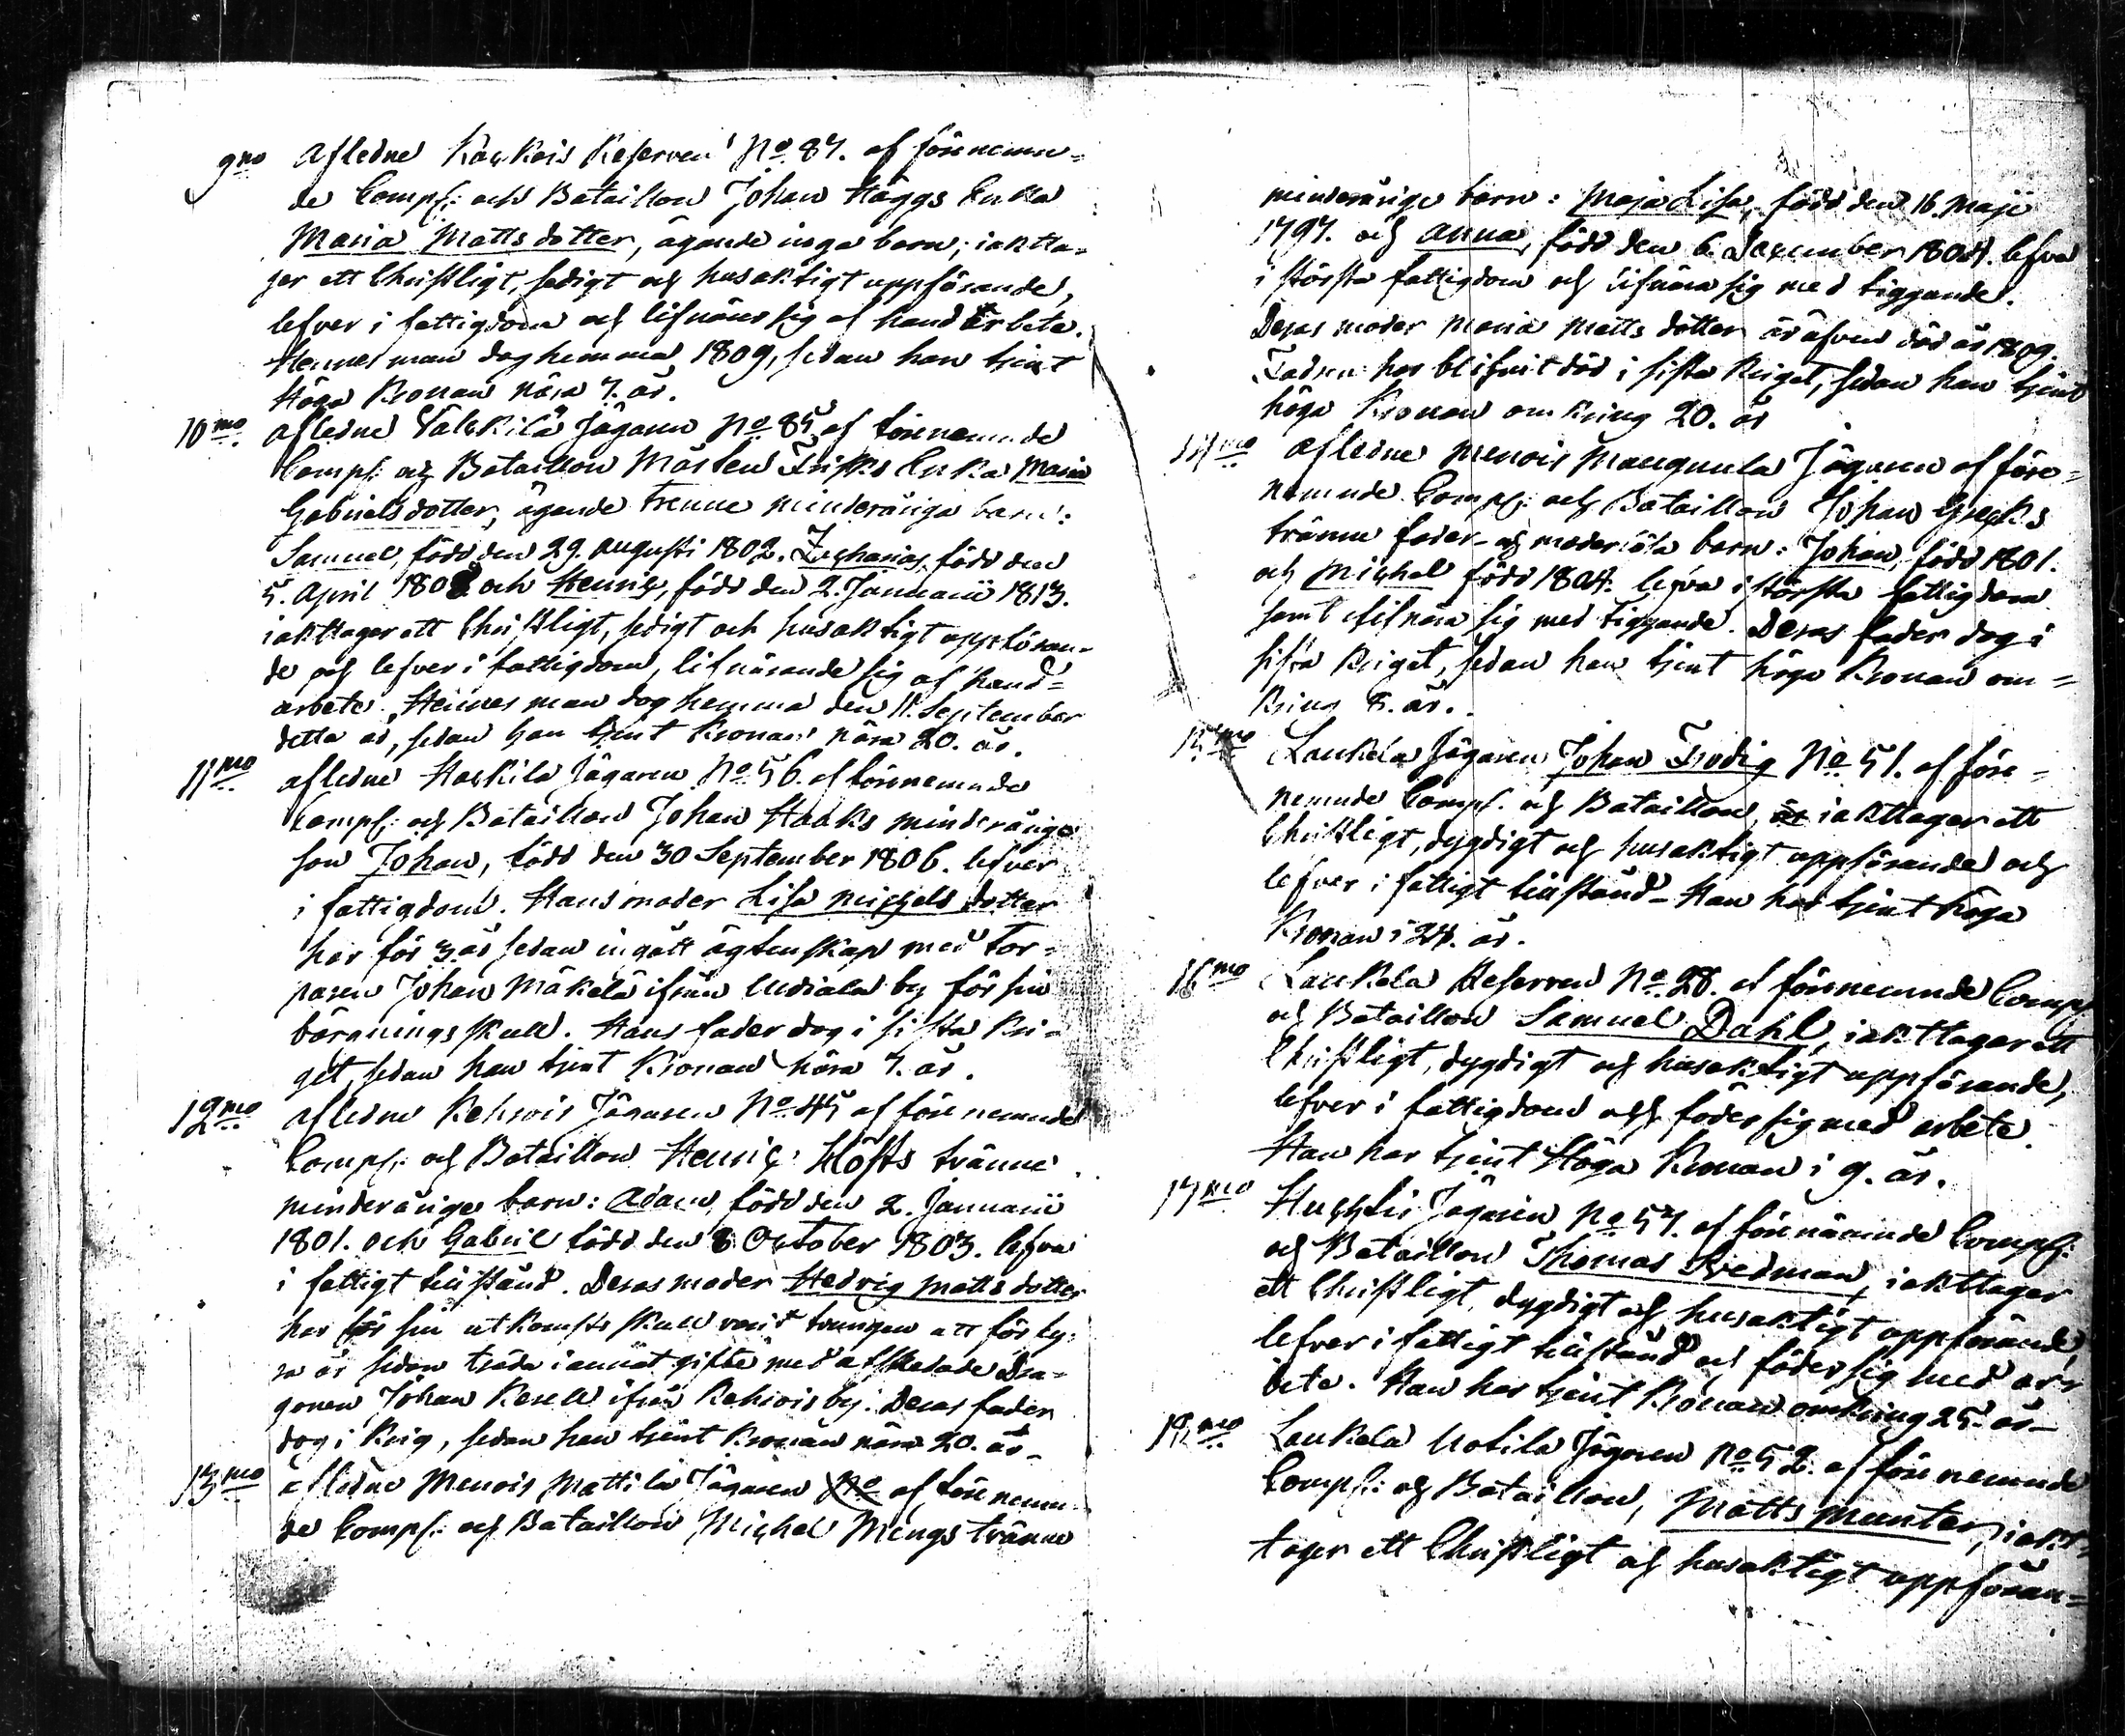 9no Afledne Kaskois Reserven No 87. af förenemn=
de Comp: och Bataillon Johan Häggs Enka
Maria Mattsdotter, ägande inga barn; iaktta-
ger ett Christligt, sedigt och husaktigt uppförande,
lefver i fattigdom och lifnärer sig af handarbete.
Hennes man dog hemma 1809, sedan han tjent
Höga Kronan nära 7. år.
10mo. afledne Välkilä Jägaren No 85 af förenemnde
Comp: och Bataillon Mårten Frisks Enka Maria
Gabrielsdotter, ägande trenne minderåriga barn:
Samuel, född den 29. Augusti 1802. Zacharias, född den
5. April 1808 och Henric, född den 2. Januarii 1813.
iakttager ett Christligt, sedigt och husaktigt uppföran-
de och lefver i fattigdom, lifnärande sig af hand=
arbete. Hennes man dog hemma den 11. September
detta år, sedan han tjent Kronan nära 20. år.
11mo. afledne Harkila Jägaren No 56. af förenemnde
Comp: och Bataillon Johan Haaks minderåriga
son Johan, född den 30 September 1806. lefver
i fattigdom. Hans moder Lisa Michelsdotter
har för 3. år sedan ingått ägtenskap med Tor-
paren Johan Mäkelä ifrån Uudiala by för sin
bärgnings skull. Hans fader dog i sista Kri-
get, sedan han tjent Kronan nära 7. år.
12mo. afledne Rehwois Jägaren No 45 af förenemnde
Comp: och Bataillon Henric Höfts tvänne
minderåriga barn: Adam, född den 2. Januarii
1801. och Gabriel född den 8 October 1803. lefva
i fattigt tillstånd. Deras moder Hedvig Mattsdotter
har för sin utkomsts skull varit tvungen att för ty-
ra år sedan träda i annat gifte med afskedade Dra-
gonen Johan Resell ifrån Rehwois by. Deras fader
dog i Krig, sedan han tjent Kronan nära 20. år.
13mo. afledne Menois Mattila Jägaren No af förenemn-
de Comp: och Bataillon Michel Mengs tvänne
minderåriga barn: Maja Lisa, född den 16. Maji
1797. och Anna, född den 6. December 1804. lefva
i största fattigdom och lifnära sig med tiggande.
Deras moder Maria Mattsdotter är äfven död år 1809.
Fadren har blifvit död i sista Kriget, sedan han tjent
höga Kronan omkring 20. år
14mo afledne Menois Maunnula Jägaren af före=
nemnde Comp: och Bataillon Johan Gjecks
tvänne fader- och moderlösa barn: Johan, född 1801.
och Michel född 1804. lefva i största fattigdom
samt lifnära sig med tiggande. Deras fader dog i
sista Kriget, sedan han tjent höga Kronan om=
kring 8. år.
15mo Laukela Jägaren Johan Frodig No 51. af före=
nemnde Comp: och Bataillon, är iakttager ett
Christligt, dygdigt och husaktigt uppförande och
lefver i fattigt tillstånd - Han har tjent höga
Kronan i 24. år.
16mo Laukela Reserven No 28. af förenemnde Comp:
och Bataillon Samuel Dahl, iakttager ett
Christligt, dygdigt och husaktigt uppförande,
lefver i fattigdom och föder sig med arbete.
Han har tjent Höga Kronan i 9. år.
17mo Huchtis Jägaren No 57. af förenämnde Comp:
och Bataillon Thomas Svedman, iakttager
ett Christligt, dygdigt och husaktigt uppförande
lefver i fattigt tillstånd och föder sig med ar-
bete. Han har tjent Kronan omkring 25. år-
18mo. Laukela Uotila Jägaren No 52. af förenemnde
Comp: och Bataillon, Matts Munter, iakt-
tager ett Christligt och husaktigt uppföran=